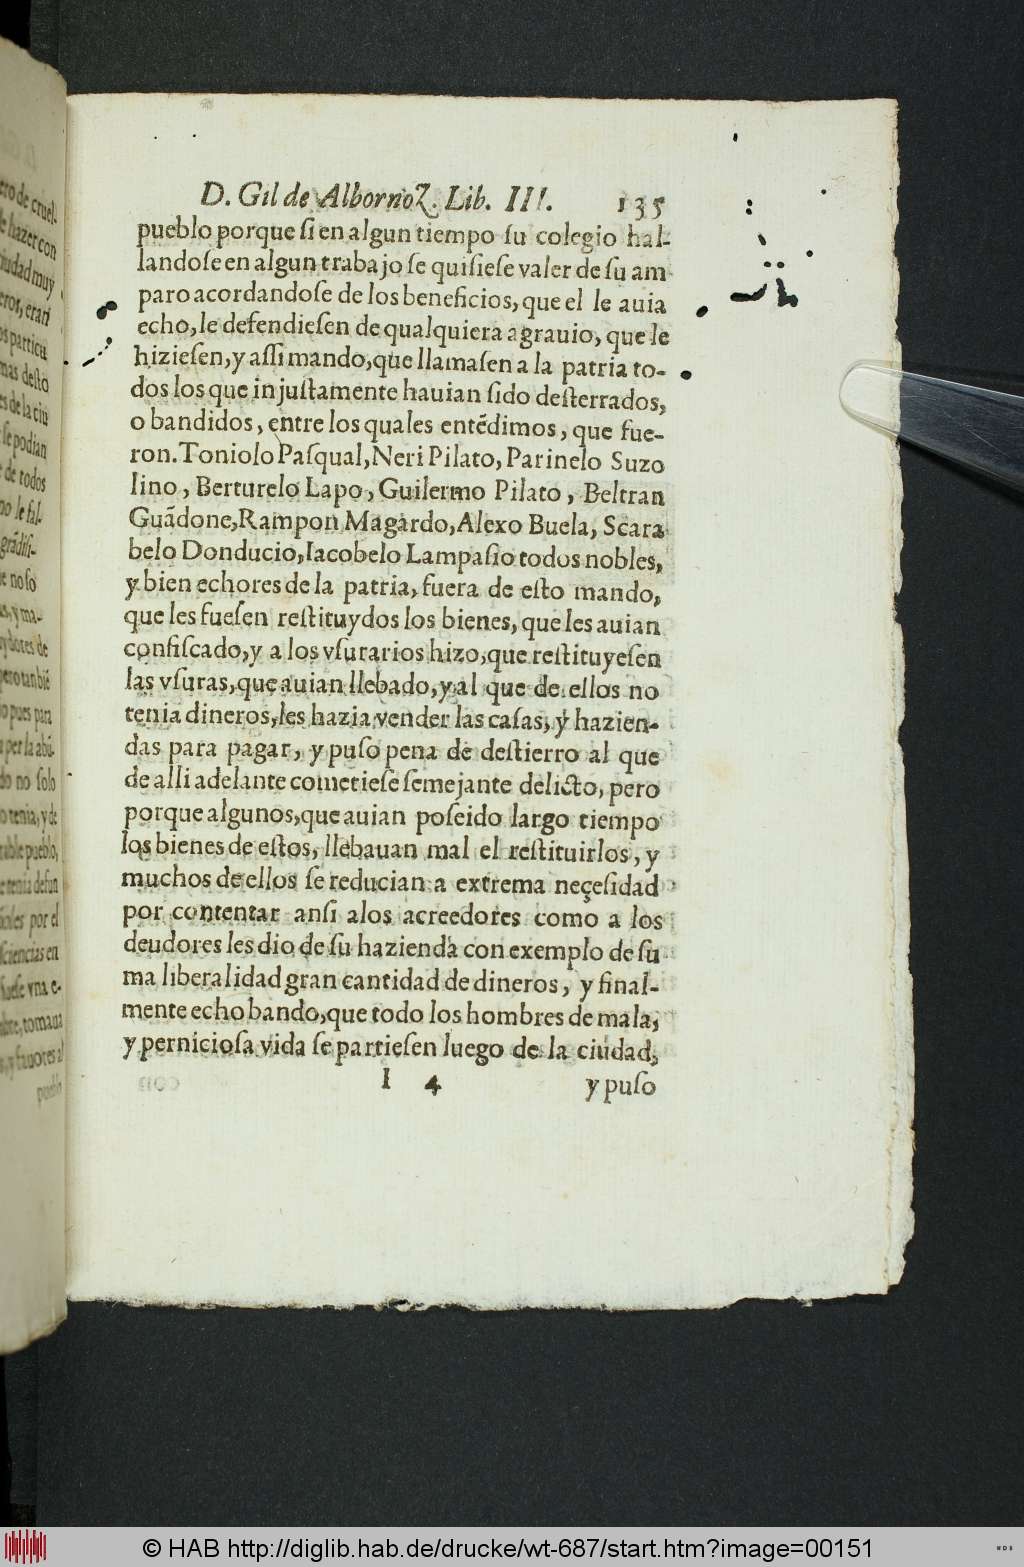 D. Gil de Albornoz. Lib. III. 135
pueblo porque ſi en algun tiempo ſu colegio hal-
landoſe en algun trabajo ſe quiſieſe valer de ſu am
paro acordandoſe de los beneficios, que el le auia
echo, le defendieſen de qualquiera agrauio, que le
hizieſen, y aſſi mando, que llamaſen a la patria to-
dos los que injuſtamente hauian ſido deſterrados,
o bandidos, entre los quales entēdimos, que fue-
ron. Toniolo Paſqual, Neri Pilato, Parinelo Suzo
lino, Berturelo Lapo, Guilermo Pilato, Beltran
Guādone, Rampon Magardo, Alexo Buela, Scara
belo Donducio, Iacobelo Lampaſio todos nobles,
y bien echores de la patria, fuera de eſto mando,
que les fueſen reſtituydos los bienes, que les auian
confiſcado, y a los vſurarios hizo, que reſtituyeſen
las vſuras, que auian llebado, y al que de ellos no
tenia dineros, les hazia vender las caſas, y hazien-
das para pagar, y puſo pena de deſtierro al que
de alli adelante cometieſe ſemejante delicto, pero
porque algunos, que auian poſeido largo tiempo
los bienes de eſtos, llebauan mal el reſtituirlos, y
muchos de ellos ſe reducian a extrema neçeſidad
por contentar anſi alos acreedores como a los
deudores les dio de ſu hazienda con exemplo de ſu
ma liberalidad gran cantidad de dineros, y final-
mente echo bando, que todo los hombres de mala,
y pernicioſa vida ſe partieſen luego de la ciudad,
I 4 y puſo
ero de cruel-
e hazer con
iudad muy
eros, erari
os particu
mas deſto
es de la ciu
ſe podian
de todos
no le fal-
grādiſi-
e no ſo
as, y ma-
ydores de
pero tanbiē
o pues para
a per la abū-
do no ſolo
o tenia, y de
table pueblo,
e tenia defun
ñoles por el
ſciencias en
fueſe vna e-
mbre, tomaua
s, y fauores al
pueblo
© HAB http://diglib.hab.de/drucke/wt-687/start.htm?image=00151